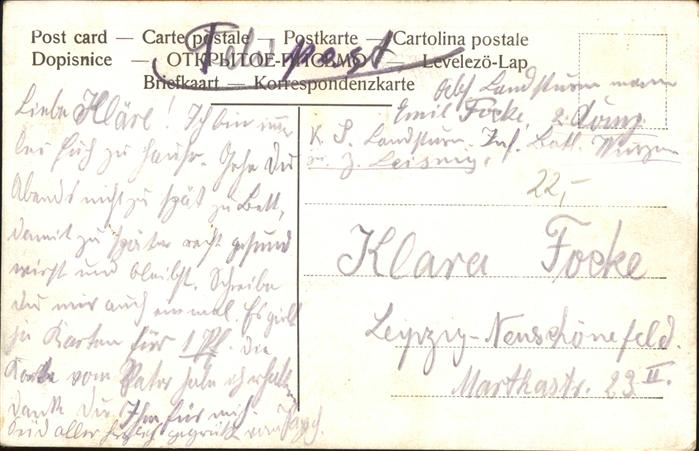 Post card — Carte postale — Postkarte — Cartolina postale
Dopisnice — ОТКРЫТОЕ ПИСЬМО — Levelező-Lap
Briefkaart — Korrespondenzkarte
Feldpost
Abs. Landsturmmann
Emil Focke, 2. Komp.
K. S. Landsturm-Inf. Batl. Wurzen
Liebe Kläre! Ich bin
bei Euch zu Hause. Gehe Du
Abends nicht zu spät zu Bett,
damit Du später recht gesund
wirst und bleibst. Schreibe
Du mir auch einmal. Es gibt
ja Karten für 1 Pf. Die
Karte vom Vater habe ich erhalten
danke Du Ihm für mich.
Seid alle herzlich gegrüßt vom
22,-
Klara Focke
Leipzig-Neuschönefeld.
Marthastr. 23 II.